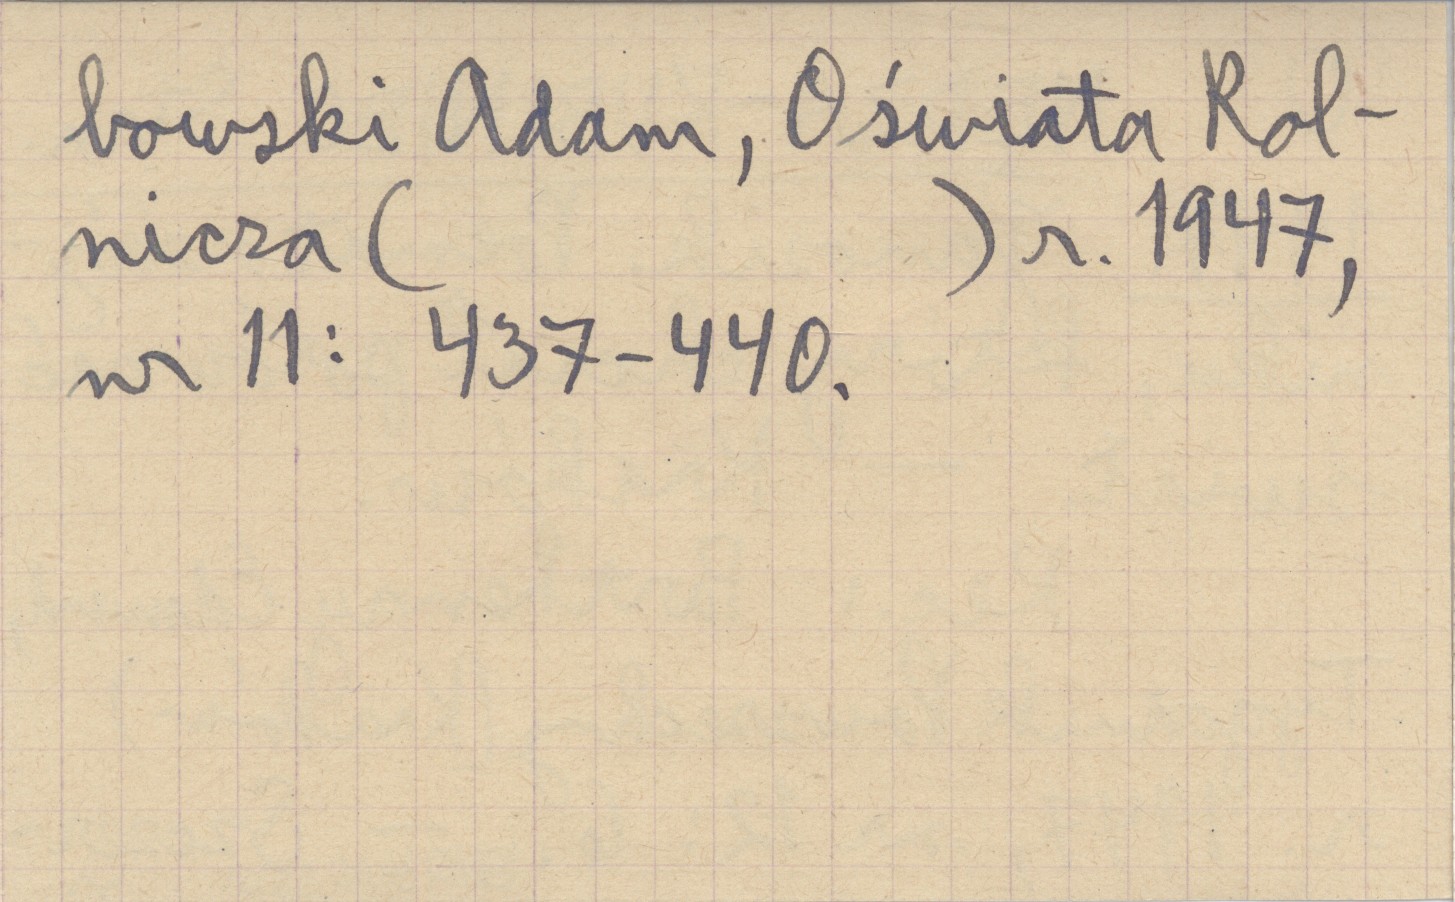 bowski Adam, Oświata Rol-
nicza (                    ) r. 1947,
nr 11: 437-440.